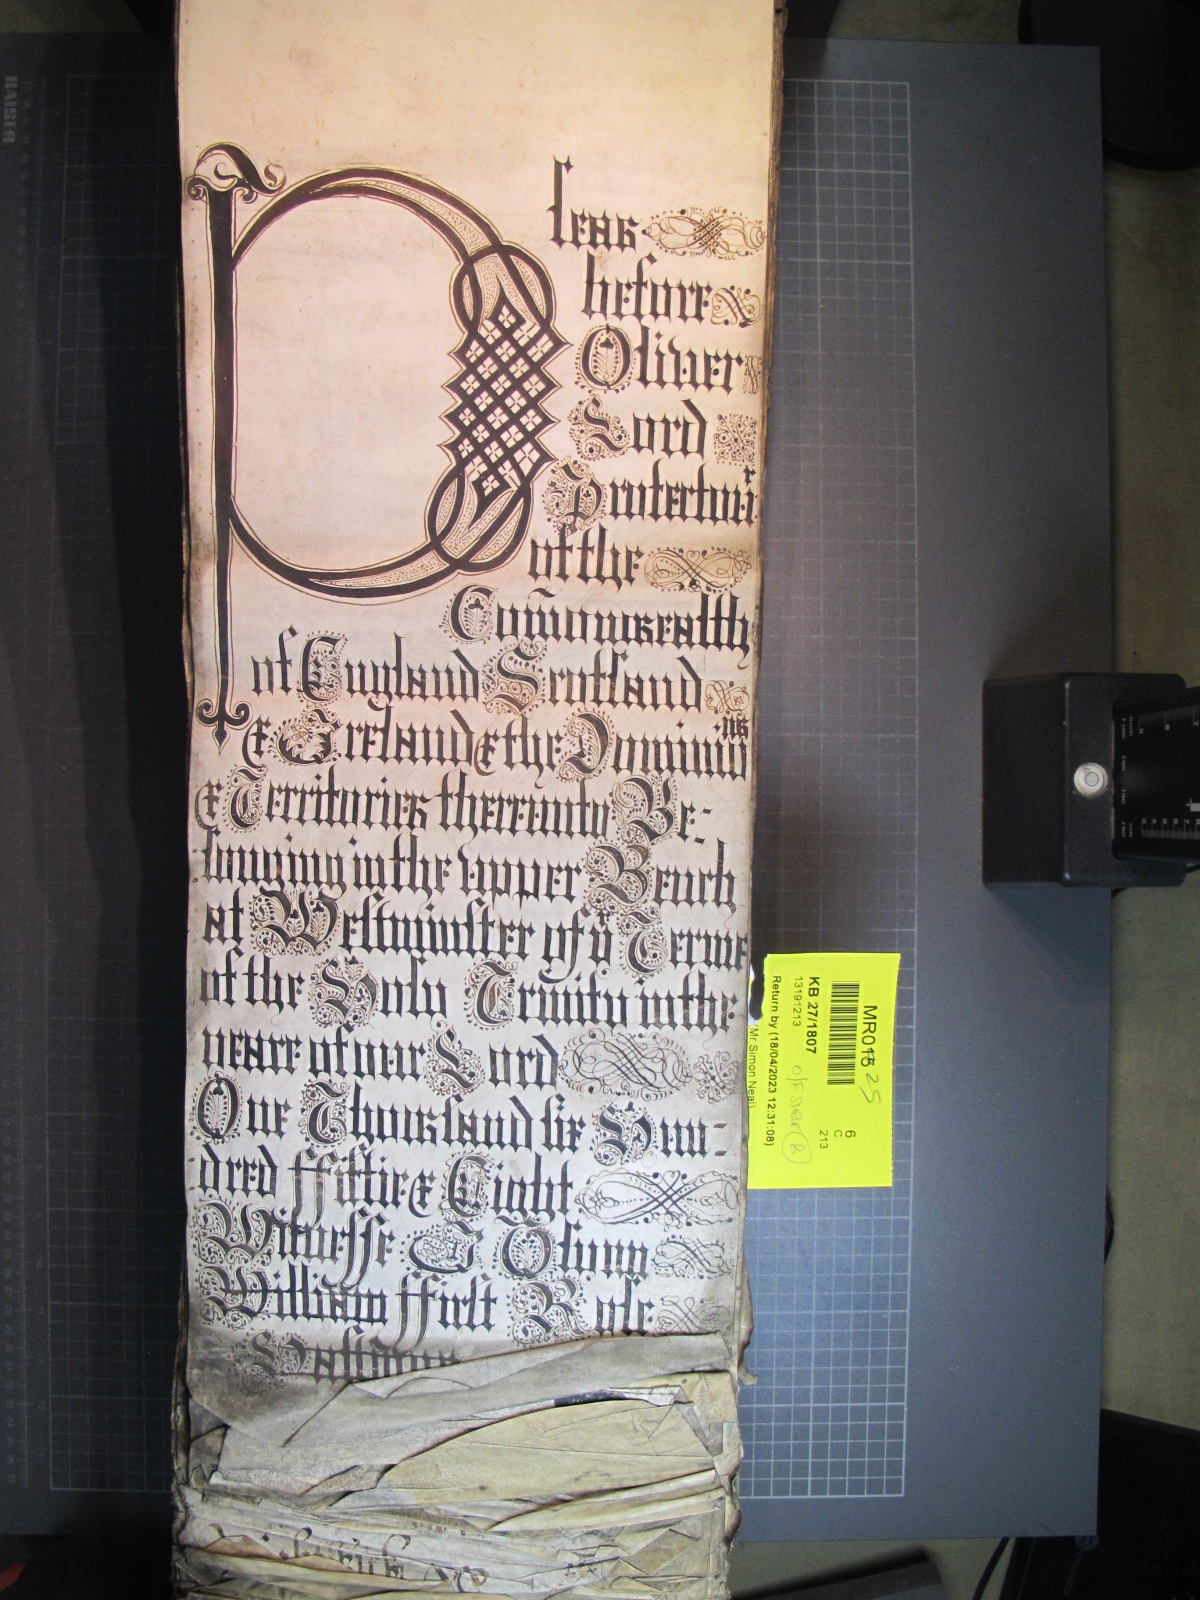 Pleas
before
Oliver
Lord
Protectour
of the
Com̃onwealth
of England Scotland
& Ireland & the Dominions
& Territories thereunto Be-
longing in the upper Bench
at Westminster of yͤ Terme
of the Holy Trinity in the
yeare of our Lord
One Thousand six Hun-
dred ffiftie & Eight
Witnesse I Iohnn
William ffirst Role
KAISER
MR016 25
6
C
213
KB 27/1807
13191213
Return by (18/04/2023 12:31:08)
(Mr Simon Neal)